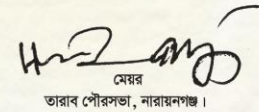 মেয়র
তারাব পৌরসভা, নারায়নগঞ্জ।